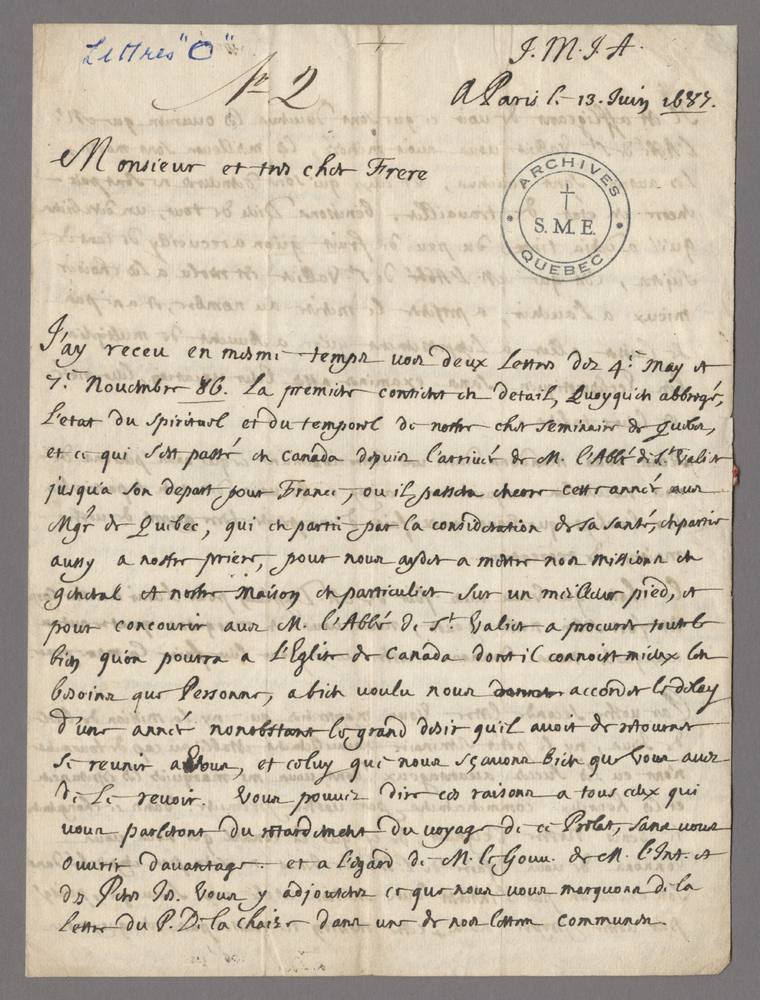 Lettres "O"
N° 2
J. M. J. A.
A Paris le 13. Juin 1687.
Monsieur et tres cher Frere
ARCHIVES
S. M. E.
QUEBEC
J'ay receu en mesme temps vos deux lettres des 4e. may et
7e. Novembre 86. La premiere contient en detail, quoyqu'en abbregé,
l'etat du spirituel et du temporel de nostre cher seminaire de Quebec,
et ce qui s'est passé en canada depuis l'arrivée de M. l'Abbé de St. Valier
jusqu'a son depart pour France, ou il passera encore cette année avec
Mgr. de Quebec, qui en partie par la consideration de sa santé, en partie
aussy a nostre priere, pour nous ayder a mettre nos missions en
general et nostre maison en particulier sur un meilleur pied, et
pour concourir avec M. l'Abbé de St. Valier a procurer tout le
bien qu'on pourra a L'Eglise de Canada dont il connoist mieux les
besoins que Personne, a bien voulu nous accorder le delay
d'une année nonobstant le grand desir qu'il avoit de retourner
se reunir a Vous, et celuy que nous sçavons bien que Vous avez
de Le revoir. Vous pouvez dire ces raisons a tous ceux qui
vous parleront du retardement du voyage de ce Prelat, sans vous
ouvrir davantage. et a L'egard de M. le Gouv. de M. l'Int. et
des Peres Js. Vous y adjouterez ce que nous vous marquons de la
lettre du P. De la chaize dans une de nos lettres communes.